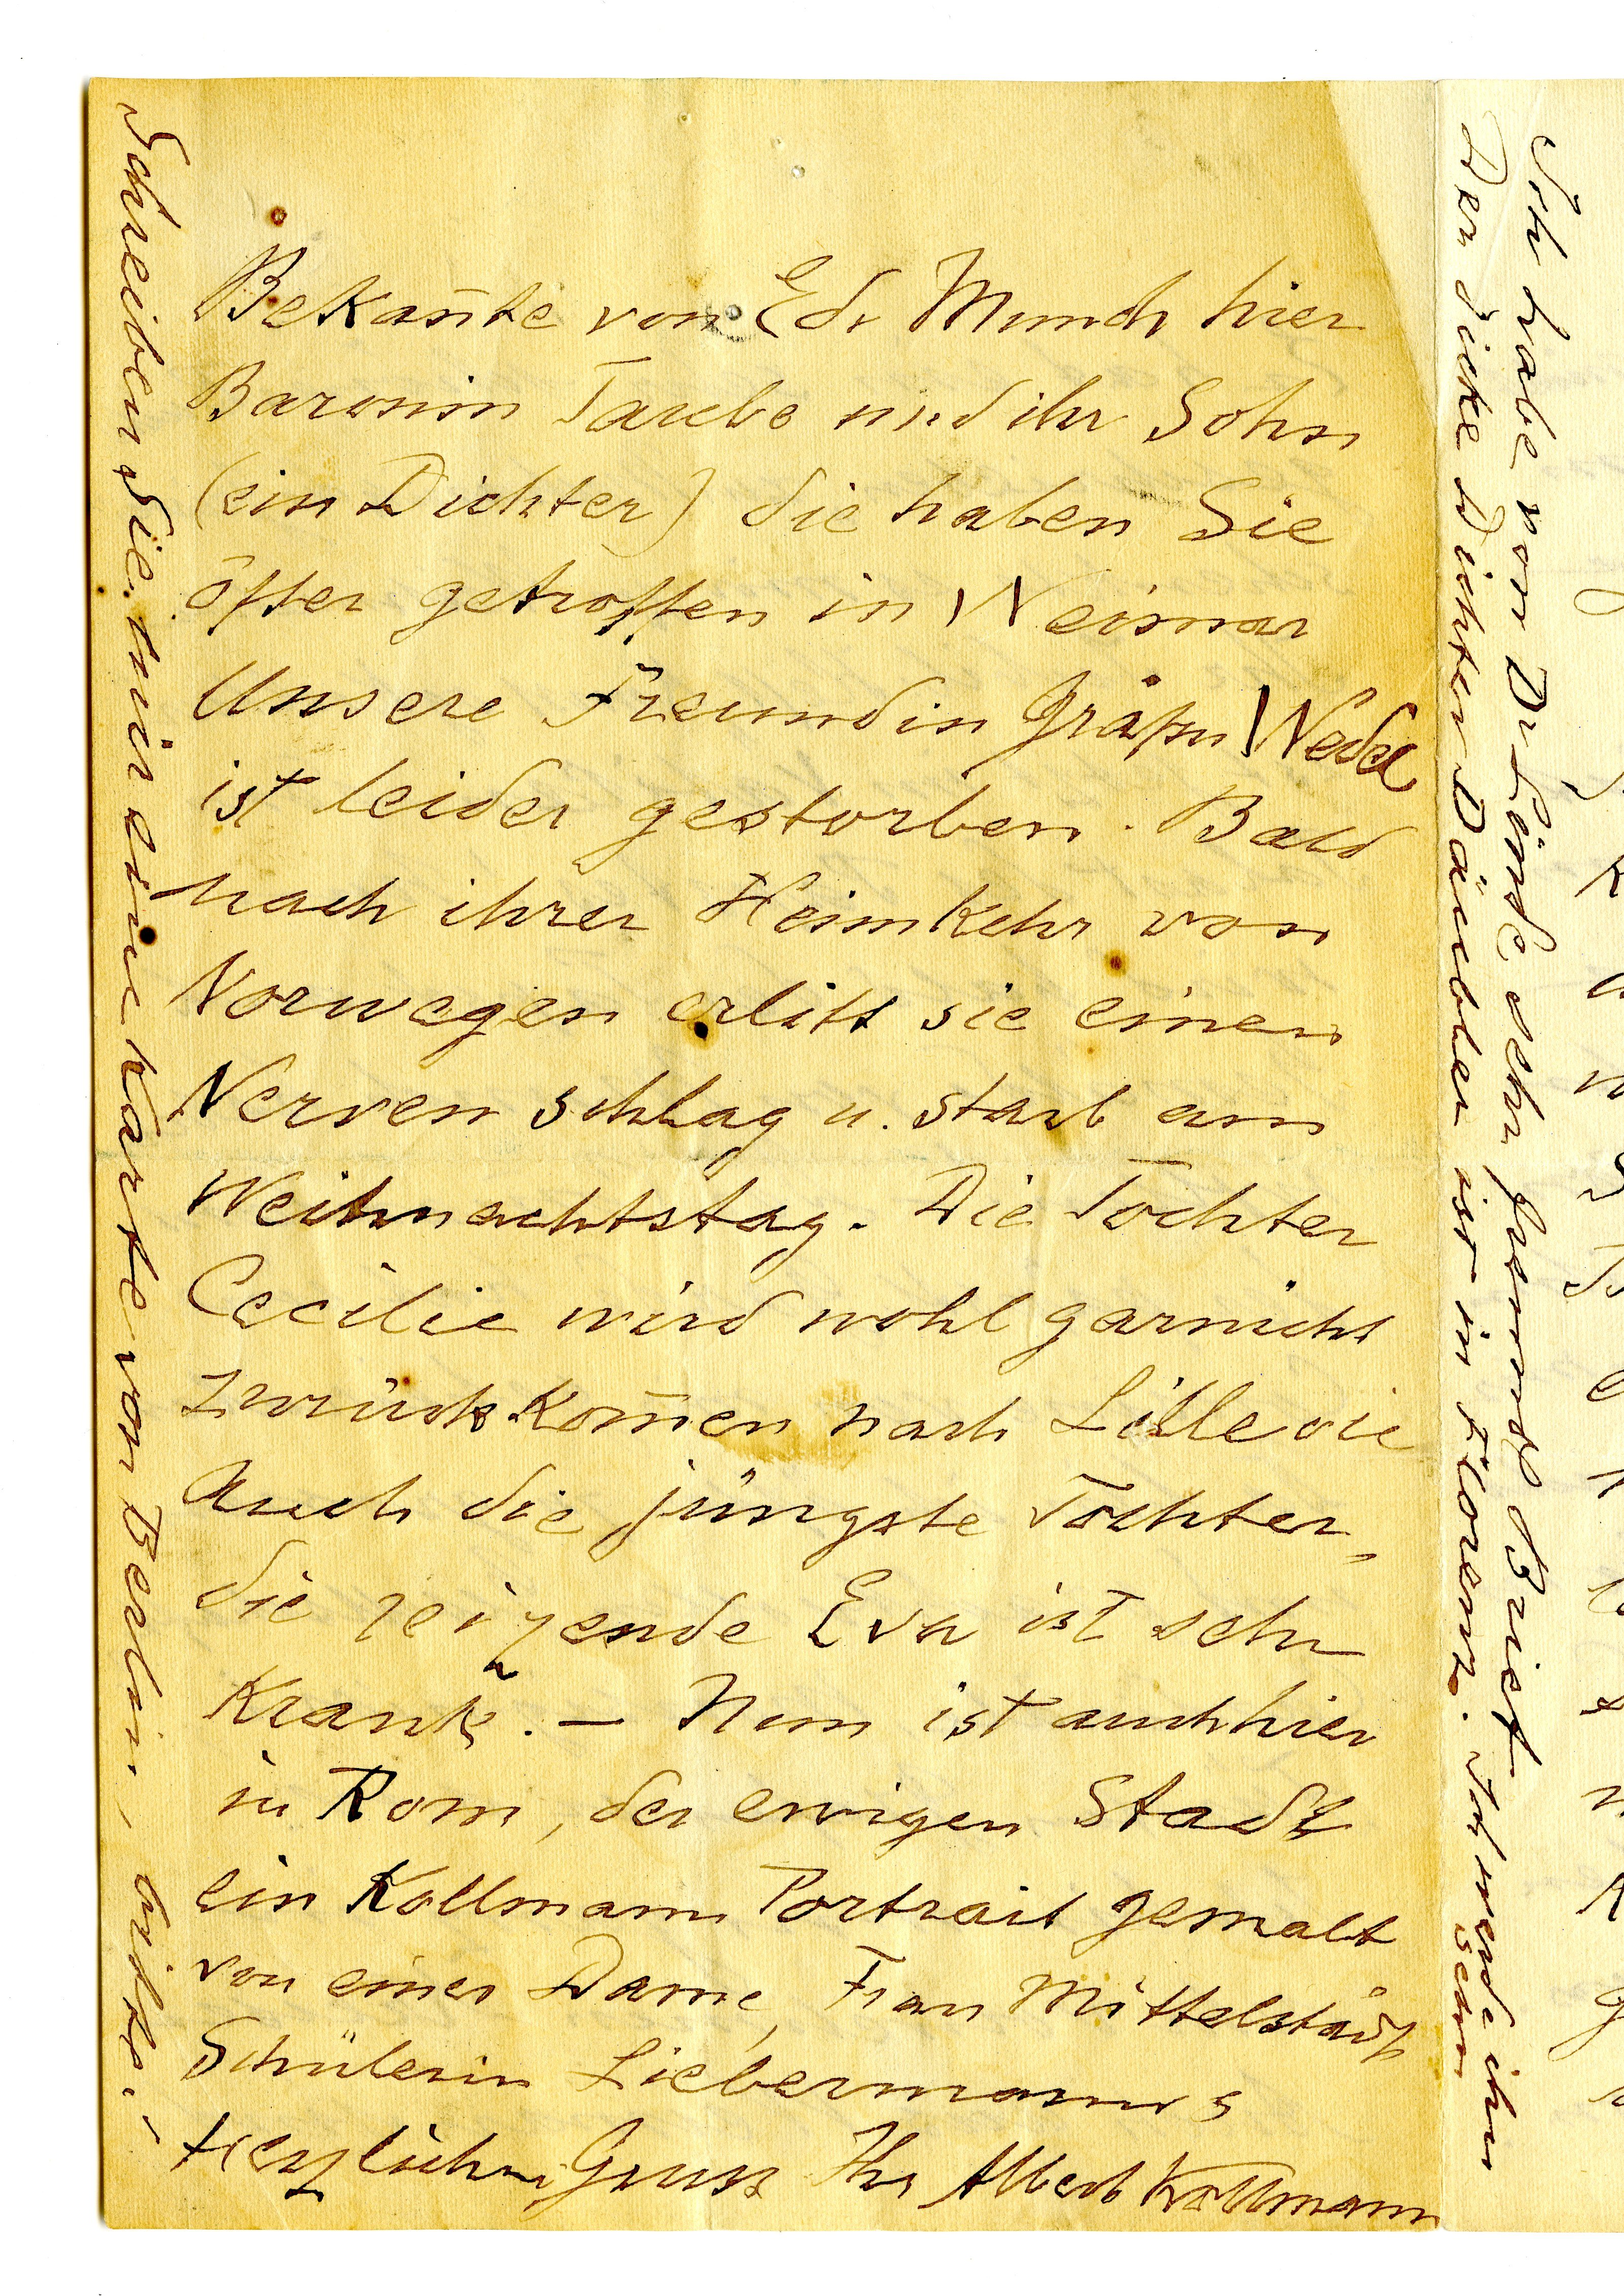 Bekan̄te von Ed. Munch hier
Baronin Taube und ihr Sohn
(ein Dichter) die haben Sie
öfter getroffen in Weimar
Unsere Freundin Gräfin Wedel
ist leider gestorben. Bald
nach ihrer Heimkehr von
Norwegen erlitt sie einen
Nervenschlag u. starb am
Weihnachtstag. Die Tochter
Cecilie wird wohl garnicht
zurückkom̄en nach
Auch die jüngste Tochter,
die reizende Eva ist sehr
Krank. – Nun ist auch hier
in Rom, der ewigen Stadt
ein Kollmann Portrait gemalt
von einer Dame, Frau Mittelstädt
Schülerin Liebermanns
Herzlichen Gruss Ihr Albert Kollmann
Schreiben Sie mir eine Karte von Berlin, bitte!
Ich habe von Dr Linde sehr Brief
Der dicke Dichter Däubler ist in Florenz. Ich werde ihn
sehn